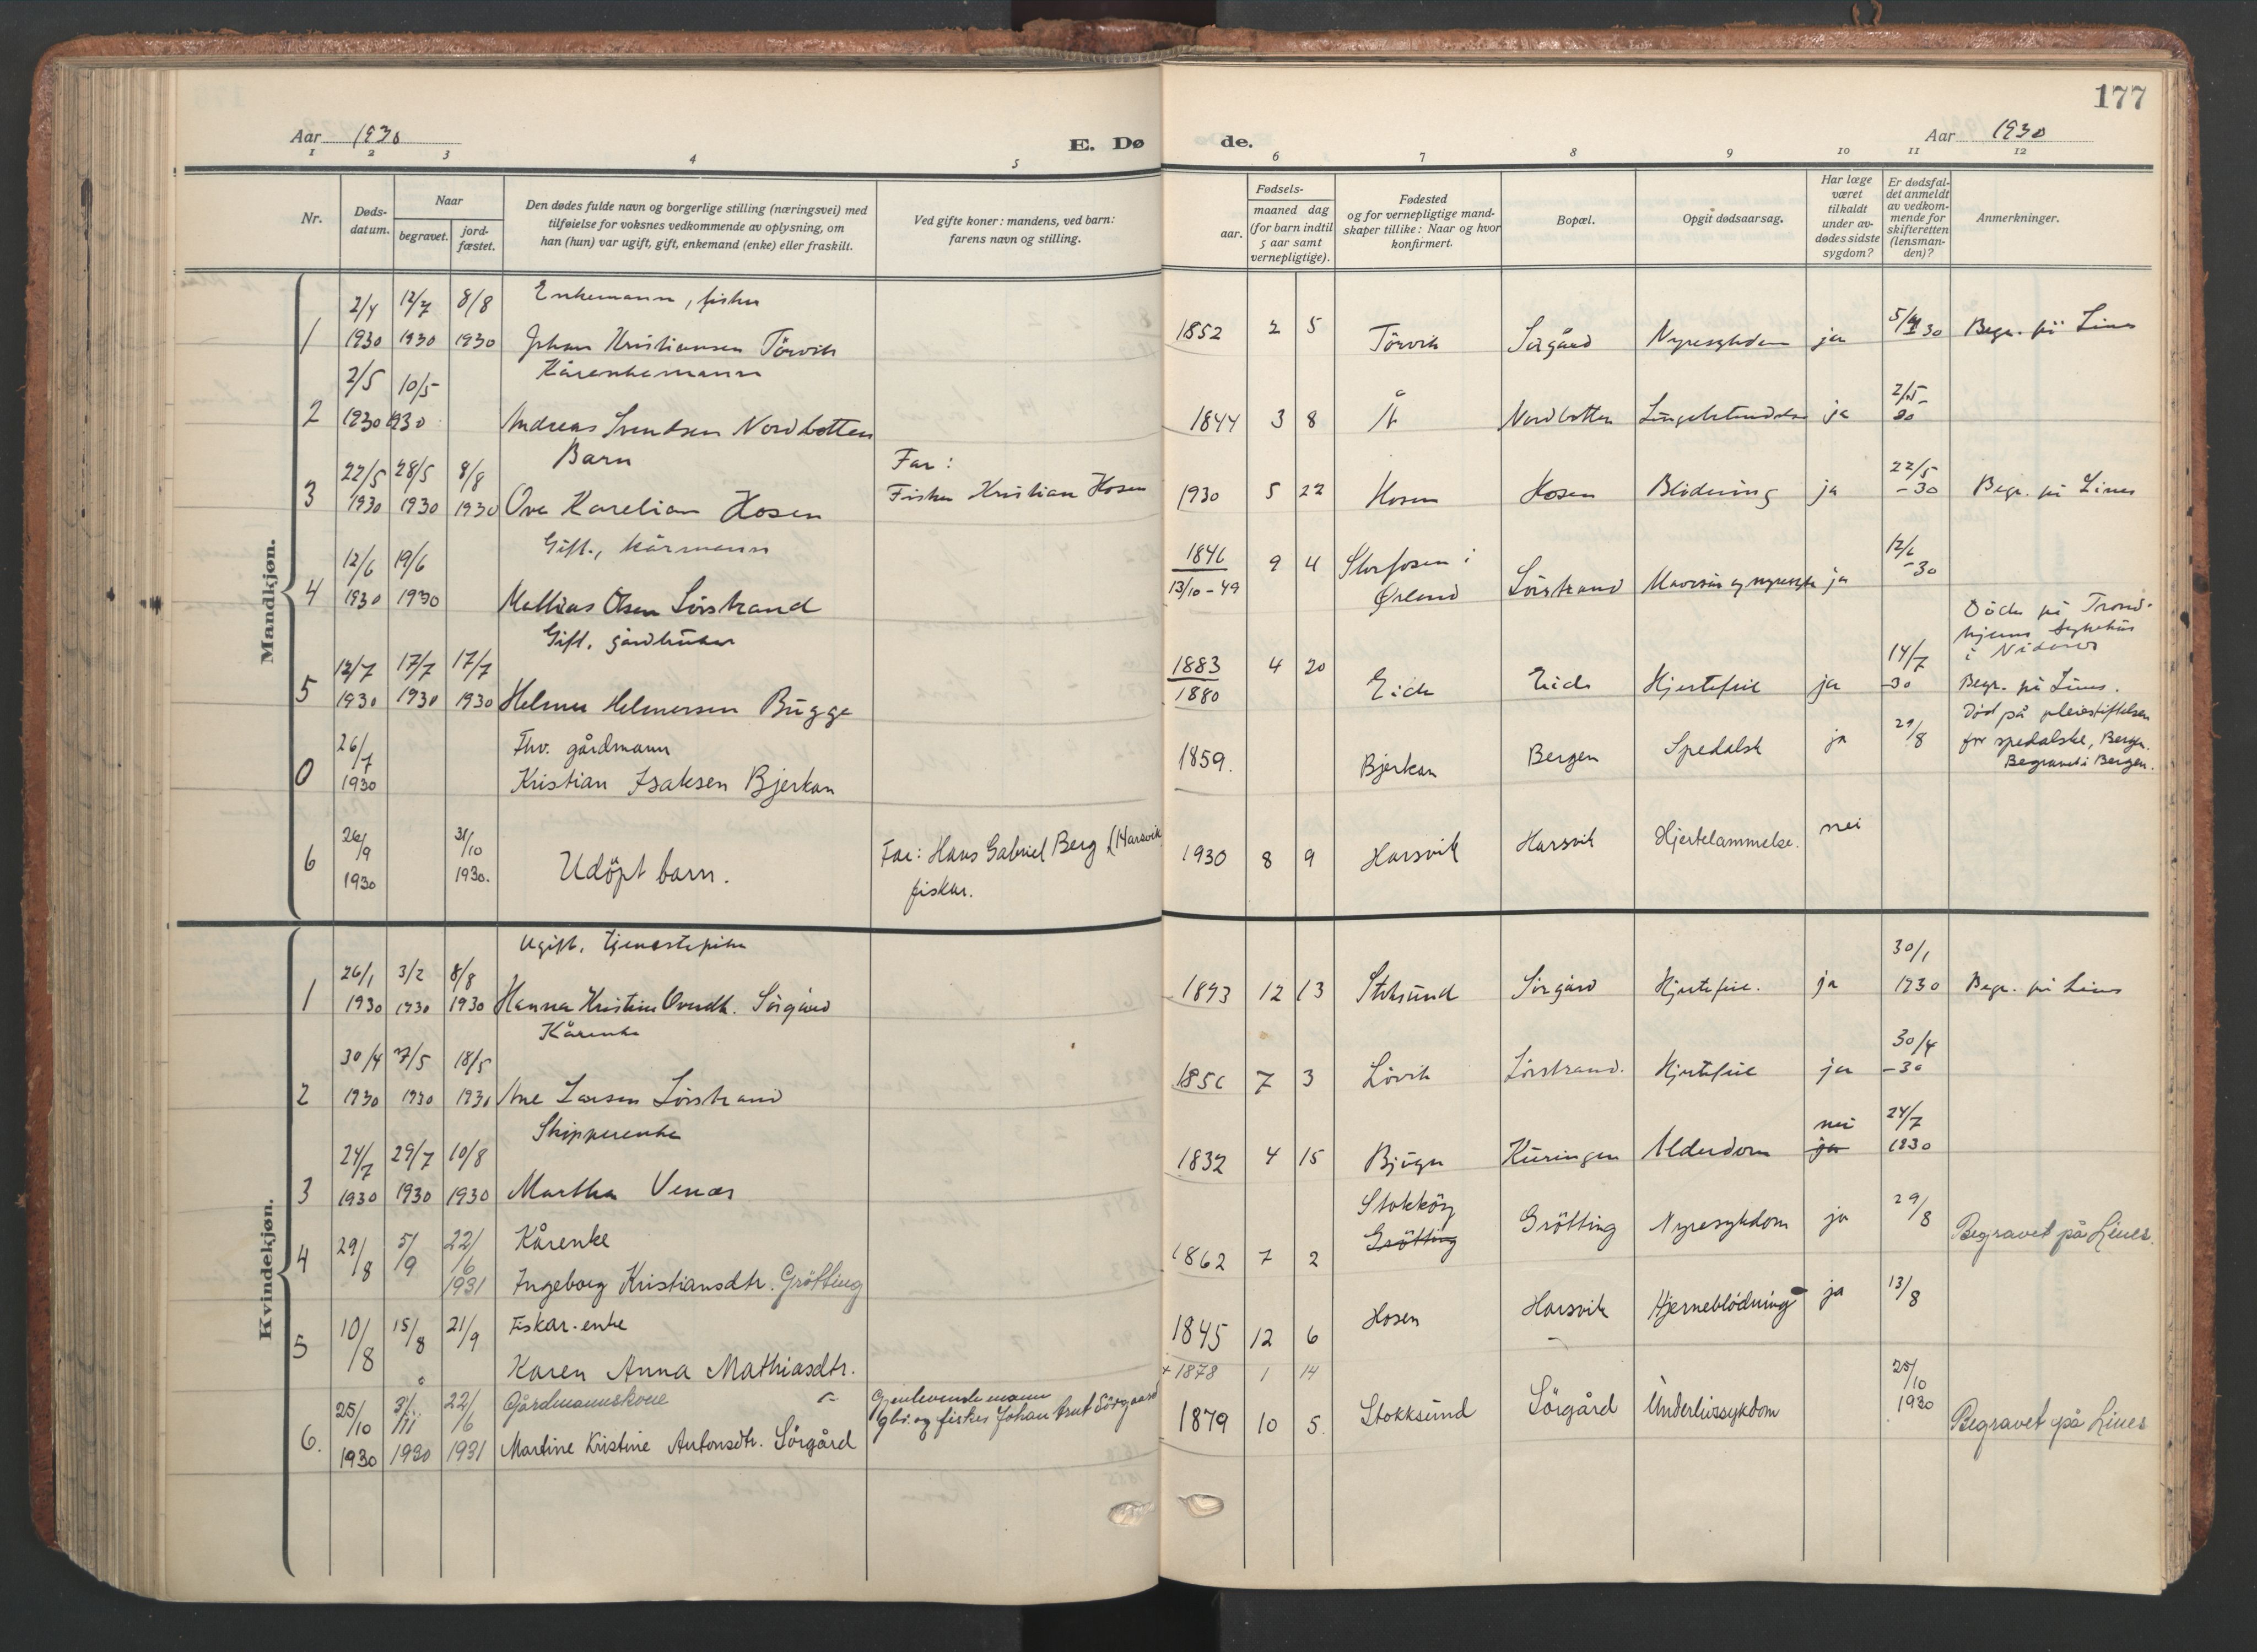 177
Aar 1930
E. Dø
de.
Aar 1930
1 2 3 4 5 6 7 8 9 10 11 12
Nr.
Døds-
datum.
Naar
begravet.
jord-
fæstet.
Den dødes fulde navn og borgerlige stilling (næringsvei) med
tilføielse for voksnes vedkommende av oplysning, om
han (hun) var ugift, gift, enkemand (enke) eller fraskilt.
Ved gifte koner: mandens, ved barn:
farens navn og stilling.
Fødsels-
aar.
maaned dag
(for barn indtil
5 aar samt
vernepligtige).
Fødested
og for vernepligtige mand-
skaper tillike: Naar og hvor
konfirmert.
Bopæl.
Opgit dødsaarsag.
Har læge
været
tilkaldt
under av-
dødes sidste
sygdom?
Er dødsfal-
det anmeldt
av vedkom-
mende for
skifteretten
(lensman-
den)?
Anmerkninger.
Mandkjøn.
2/4 12/7 8/8 Enkemann, fisker
1 1930 1930 1930 Johan Kristiansen Törvik 1852 2 5 Törvik Sørgård Nyresykdom ja 5/4 30 Begr. på Lines
2/5 10/5 Kårenkemann
2 1930 1930 Andreas Svendsen Nordbotten 1844 3 8 Å Nordbotten ja 2/5- 30
22/5 28/5 8/8 Barn Far:
3 1930 1930 1930 Ove Karelian Hosen Fisker Kristian Hosen 1930 5 22 Hosen Hosen Blödning ja 22/5 -30 Begr. på Lines
12/6 19/6 Gift, kårmann
4 1930 1930 Mathias Olsen Sörstrand 1846 13/10-49 9 4 Storfosen i Ørland Sörstrand ja 12/6 -30
12/7 17/7 17/7 Gift, gårdbruker
5 1930 1930 1930 Helmer Helmersen Bügge 1883 1880 4 20 Eide Eide Hjertefeil ja 14/7 -30 Döde på Trond-
hjems sykehus
i Nidaros
Begr. på Lines.
0 26/7 1930 Fhv. gårdmann
Kristian Isaksen Bjerkan 1859. Bjerkan Bergen Spedalsk ja 29/8 Död på pleiestiftelsen
for spedalske, Bergen.
Begravet i Bergen.
6 26/9 1930 31/10 1930. Udöpt barn. Far: Hans Gabriel Berg (Harsvik
fiskar. 1930 8 9 Harsvik Harsvik Hjertelammelse. nei
Kvindekjøn.
26/1 3/2 8/8 Ugift, tjenestepike
1 1930 1930 1930 Hanna Kristine Ovedt. Sörgård 1893 12 13 Stoksund Sörgård Hjertefeil. ja 30/1 1930 Begr. på Lines
30/4 7/5 18/5 Kårenke
2 1930 1930 1930 Ane Larsen Sörstrand 1856 7 3 Lövik Sörstrand. Hjertefeil ja 30/4 -30
24/7 29/7 10/8 Skipperenke
3 1930 1930 1930 Martha Venæs 1832 4 15 Bjügn Küringen Alderdom nei ja 24/7 1930
4 29/8 5/9 22/6 1931 Kårenke
Ingeborg Kristiansdtr. Grötting 1862 7 2 Stokköy Grötting Grötting Nyresykdom ja 29/8 Begravet på Lines.
5 10/8 15/8 21/9 Fiskar-enke
Karen Anna Mathiasdtr. 1845 12 6 Hosen Harsvik Hjerneblödning ja 13/8
+ 1878 1 14
6. 25/10 1930 3/11 1930 22/6 1931 Gårdmannskone
Martine Kristine Antonsdtr. Sörgård Gjenlevende mann
gbr. og fisker Johan Sörgaard 1879 10 5. Stokksund Sörgård Underlivssykdom 25/10 1930 Begravet på Lines